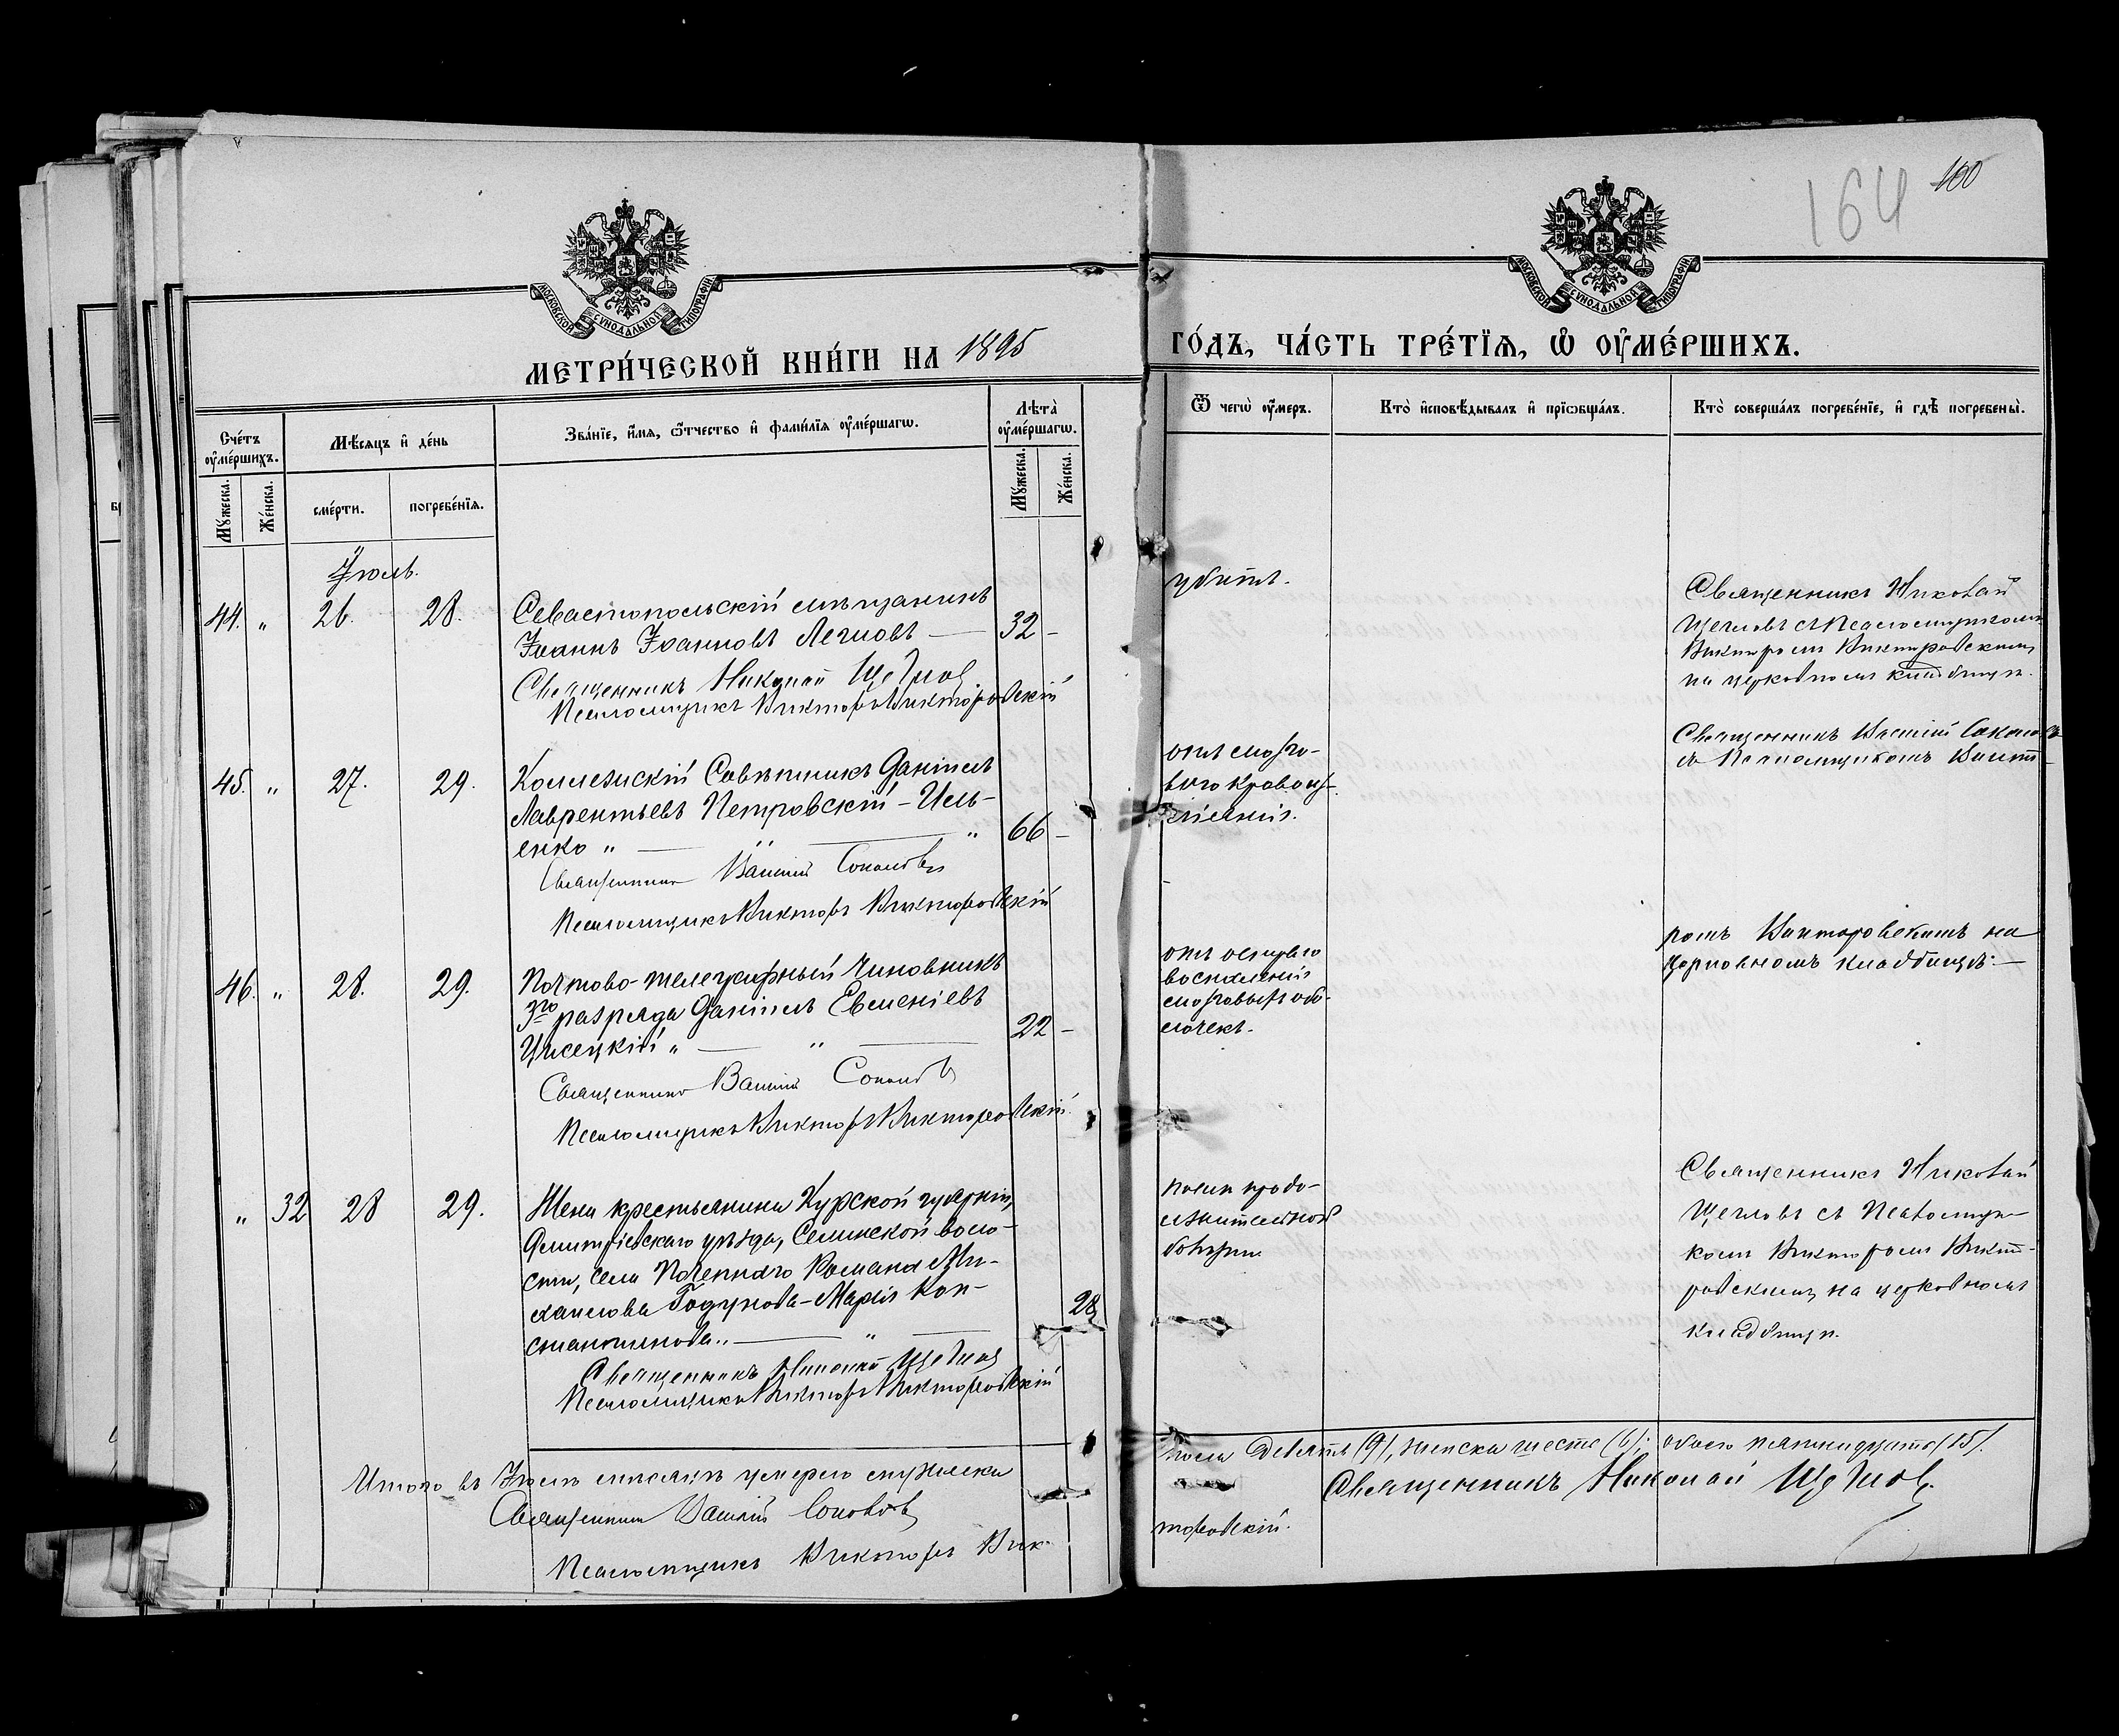 164 100
МОСКОВСКОЙ СѴНОДАЛЬНОЙ ТИПОГРАФІИ
МОСКОВСКОЙ СѴНОДАЛЬНОЙ ТИПОГРАФІИ
МЕТРИ́ЧЕСКОЙ КНИ́ГИ НА 1895
ГО́ДЪ, ЧА́СТЬ ТРЕ́ТЇѦ, Ѡ҆ ОУ҆МЕ́РШИХЪ.
Сче́тъ оу҆ме́ршихъ.
Мѣ́сѧцъ и҆ де́нь
Зва́нїе, и҆́мѧ, ѻ҆́тчество и҆ фами́лїѧ оу҆ме́ршагѡ.
Лѣ́та оу҆ме́ршагѡ.
Ѿ чегѡ̀ оу҆́меръ.
Кто̀ и҆сповѣ́дывалъ и҆ прїѡбща́лъ.
Кто̀ соверша́лъ погребе́нїе, и҆ гдѣ̀ погребены̀.
Мꙋ́жеска.
Же́нска.
сме́рти.
погребе́нїѧ.
Мꙋ́жеска.
Же́нска.
Іюль.
44. " 26. 28.
Севастопольскій мѣщанинъ
Іоаннъ Іоанновъ Легновъ — 32 -
Священникъ Николай Щегловъ
Псаломщикъ Викторъ Викторовскій
убитъ.
Священникъ Николай
Щегловъ съ Псаломщикомъ
Викторомъ Викторовскимъ
на церковномъ кладбищѣ.
45. " 27. 29.
Коллежскій Совѣтникъ Даніилъ
Лаврентьевъ Петровскій-Иль-
енко " — " — " 66 -
Священникъ Василій Соколовъ
Псаломщикъ Викторъ Викторовскій
отъ мозго-
вого кровоиз-
ліянія.
Священникъ Василій Соколовъ
съ Псаломщикомъ Викто-
ромъ Викторовскимъ на
церковномъ кладбищѣ. —
46. " 28. 29.
Почтово-телеграфный чиновникъ
3го разряда Даніилъ Евменіевъ
" — " — 22 -
Священникъ Василій Соколовъ
Псаломщикъ Викторъ Викторовскій
отъ остраго
воспаленія
мозговыхъ обо-
лочекъ.
" 32 28 29.
Жена крестьянина Курской губерніи,
Дмитріевскаго уѣзда, Селинской воло-
сти, села Погепнаго Романа Ми-
хаилова Годунова-Марія Кон-
стантинова " — " — 28
Священникъ Николай Щегловъ
Псаломщикъ Викторъ Викторовскій
послѣ продо-
лжительной
болѣзни
Священникъ Николай
Щегловъ съ Псаломщи-
комъ Викторомъ Викто-
ровскимъ, на церковномъ
кладбищѣ.
Итого въ Іюлѣ мѣсяцѣ умерло мужеска
пола девять (9), женска шесть (6); обоего пятнадцать (15).
Священникъ Николай Щегловъ.
Священникъ Василій Соколовъ
Псаломщикъ Викторъ Вик-
торовскій.